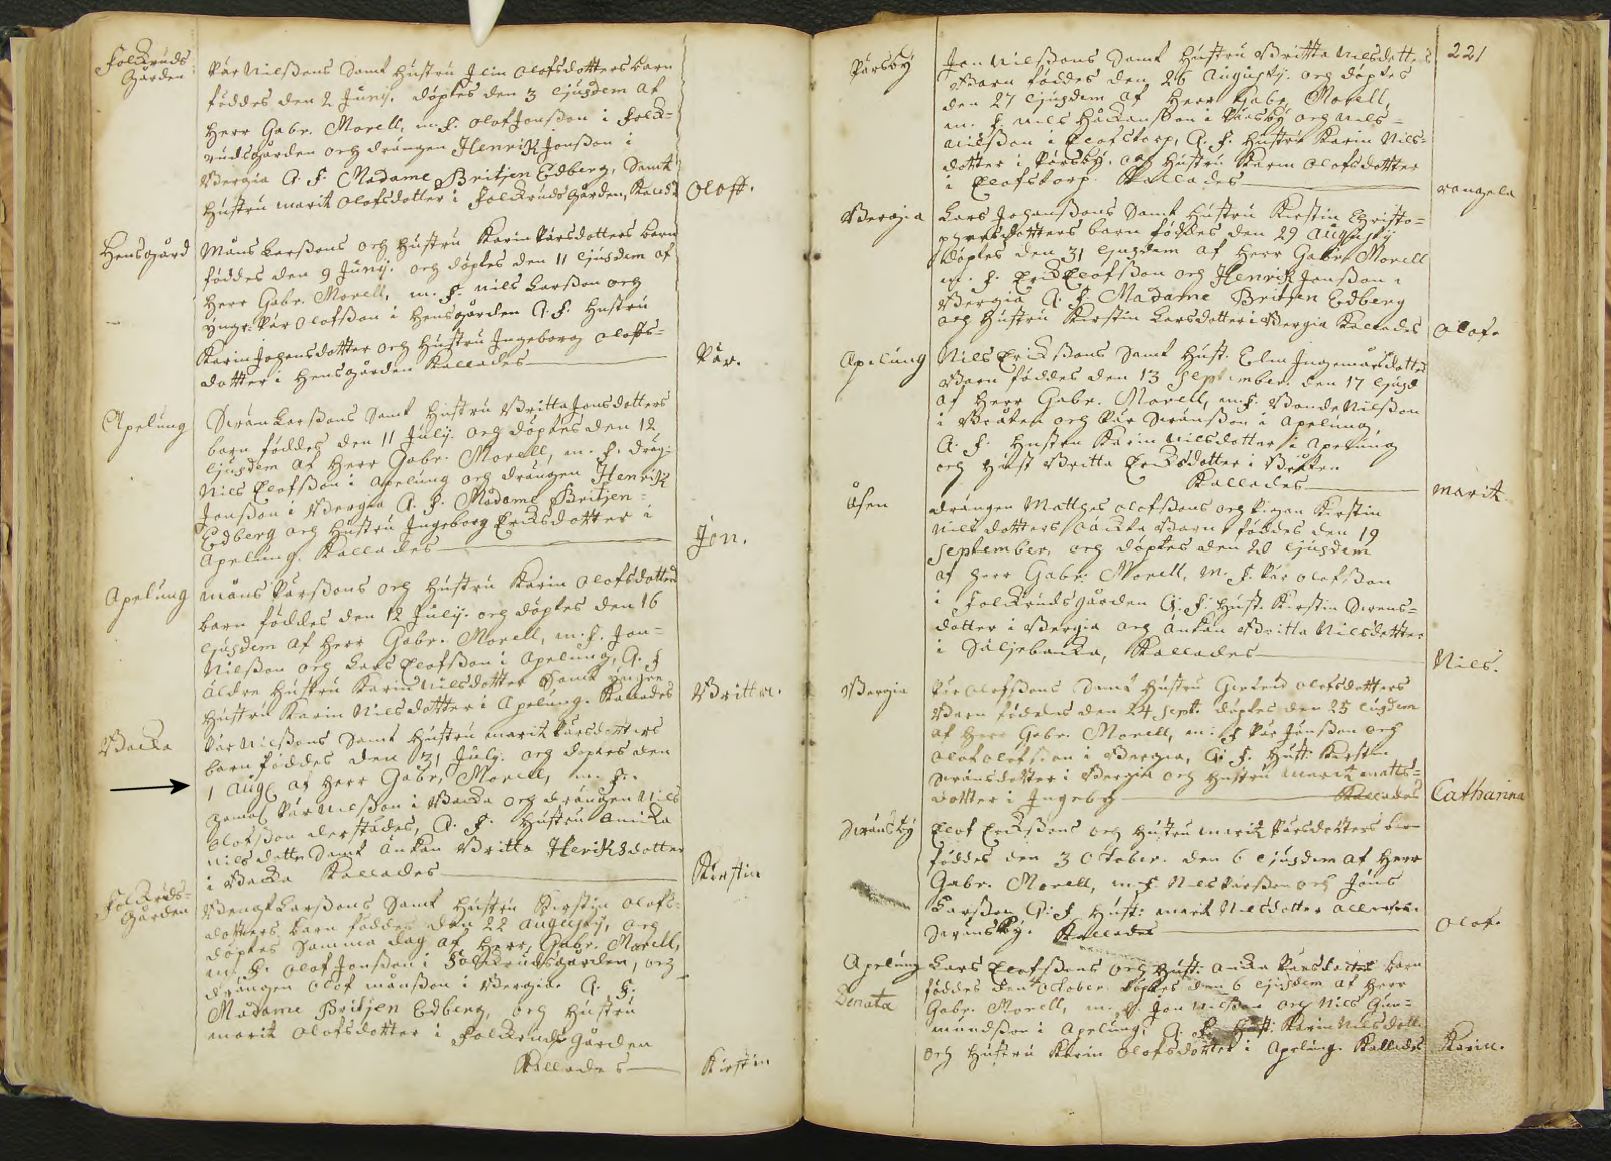 Folkruds
Gården
Pär Nilßons Samt hustru Elin Olofsdotters barn
föddes den 2 Junij. döptes den 3 ejusdem af
Herr Gabr. Morell, m. f. Olof Jonßon i Folk-
rudsgården och drängen Henrik Jonßon i
Bergia Q. F. Madame Britjen Edberg, Samt
hustru marit Olofsdotter i Folkruds gården, Kallad
Oloff.
Hensgård
Måns Larßons och hustru Karin Pärsdotters barn
föddes den 9 Junij. och döptes den 11 ejusdem af
Herr Gabr. Morell, m. f. Nils Larßon och
yngr: Pär Olofßon i Hensgården Q. F. Hustru
Karin Johansdotter och hustru Ingeborg Oloffs-
dotter i Hensgården Kallades
Pär.
Apelung
Swän Larßons Samt hustru Britta Jonsdotters
barn föddes den 11 Julij. och döptes den 12
ejusdem af Herr Gabr. Morell, m. f. dräng:
Nils Elofßon i Apelung och drängen Henrik
Jonßon i Bergia Q. F. Madame Britjen
Edberg och hustru Ingeborg Ericksdotter i
Apelung. Kallades
Jon.
Apelung
Måns Pärßons och hustru Karin Olofsdotters
barn föddes den 12 Julij. och döptes den 16
ejusdem af Herr Gabr. Morell, m. f. Jon
Nilßon och Lars Elofßon i Apelung, Q. F
äldre hustru Karin Nilsdotter Samt yngre
hustru Karin Nilsdotter i Apelung. Kallades
Britta.
Backa
Pär Nilßons Samt hustru marit Pärsdotters
barn föddes den 31 Julij. och döptes den
1 Aug af Herr Gabr. Morell, m. f.
gamal Pär Nilßon i Backa och drängen Nils
Olofßon derstädes, Q. F. hustru Anicka
Nilsdotter Samt Änkan Britta Heriksdotter
i Backa Kallades
Kirstin
Folkruds-
Gården
Bengt Larßons Samt hustru Kirstin Olofs-
dotters barn föddes den 22 Augustij, och
döptes Samma dag af Herr Gabr. Morell,
m. f. Olof Jonßon i Folkrudsgården, och
drängen Olof Månßon i Bergia. Q. F.
Madame Britjen Edberg, och hustru
marit Olofsdotter i Folkruds Gården
Kallades
Kirstin
221
Pärsby
Jon Nilßons Samt hustru Britta Nilsdotters
Barn föddes den 26 Augustij. och döptes
den 27 ejusdem af Herr Gabr. Morell,
m. f. Nils Håkanßon i Pärsby och Nils
Nilßon i Elofstorp, Q. F. hustru Karin Nils-
dotter i Pärsby. och hustru Karin Olofsdotter
i Elofstorp. Kallades
Bergia
Lars Johanßons Samt hustru Kirstin Christo-
phersdotters barn föddes den 29 Augustij
döptes den 31 ejusdem af Herr Gabr. Morell
m. f. Erick Elofßon och Henrik Jonßon i
Bergia Q. F. Madame Britjen Edberg
och hustru Kirstin Larsdotter i Bergia Kallades
Olof.
Apelung
Nils Erickßons Samt Hust. Elin Ingemarsdotters
Barn föddes den 13 September. den 17 ejusd
af Herr Gabr. Morell, m. f. Bonde Nilßon
i Bråten och Pär Swänßon i Apelung,
Q. F. hustru Karin Nilsdotter i Apelung
och Hust Britta Ericksdotter i Bråten
Kallades
Marit
Åsen
drängen Matthes Olofßons och Pigan Kirstin
Nilsdotters oäckta Barn föddes den 19
September, och döptes den 20 ejusdem
af Herr Gabr. Morell, m. f. Pär Olofßon
i Folkruds gården Q. F. Hust. Kirstin Swens-
dotter i Bergia och Änkan Britta Nilsdotter
i Säljebacka, Kallades
Nils.
Bergia
Pär Olofßons Samt hustru Gertrud Olofsdotters
Barn föddes den 24 Sept. döptes den 25 ejusdem
af Herr Gabr. Morell, m. f Pär Jonßon och
Olof Olofßon i Bergia, Q. F. Hust Kirstin
Swänsdotter i Bergia och hustru Marit Matts-
dotter i Ingeby Kallades
Catharina
Swänsby
Elof Erickßons och hustru marit Pärsdotters barn
föddes den 3 October. den 6 ejusdem af Herr
Gabr. Morell, m. f. Nils Pärßon och Jöns
Larßon Q. F Hust: marit Nilsdotter
Swänsby. Kallades
Olof.
Apelung
Denata
Lars Elofßons och Hust. Anicka Pärsdotters barn
föddes den 4 October. döptes den 6 ejusdem af Herr
Gabr. Morell, m. f. Jon Nilßon och Nils Gun-
mundßon i Apelung, Q. F. Hust. Karin Nilsdott.
och hustru Karin Olofsdotter i Apelung. Kallades
Karin.